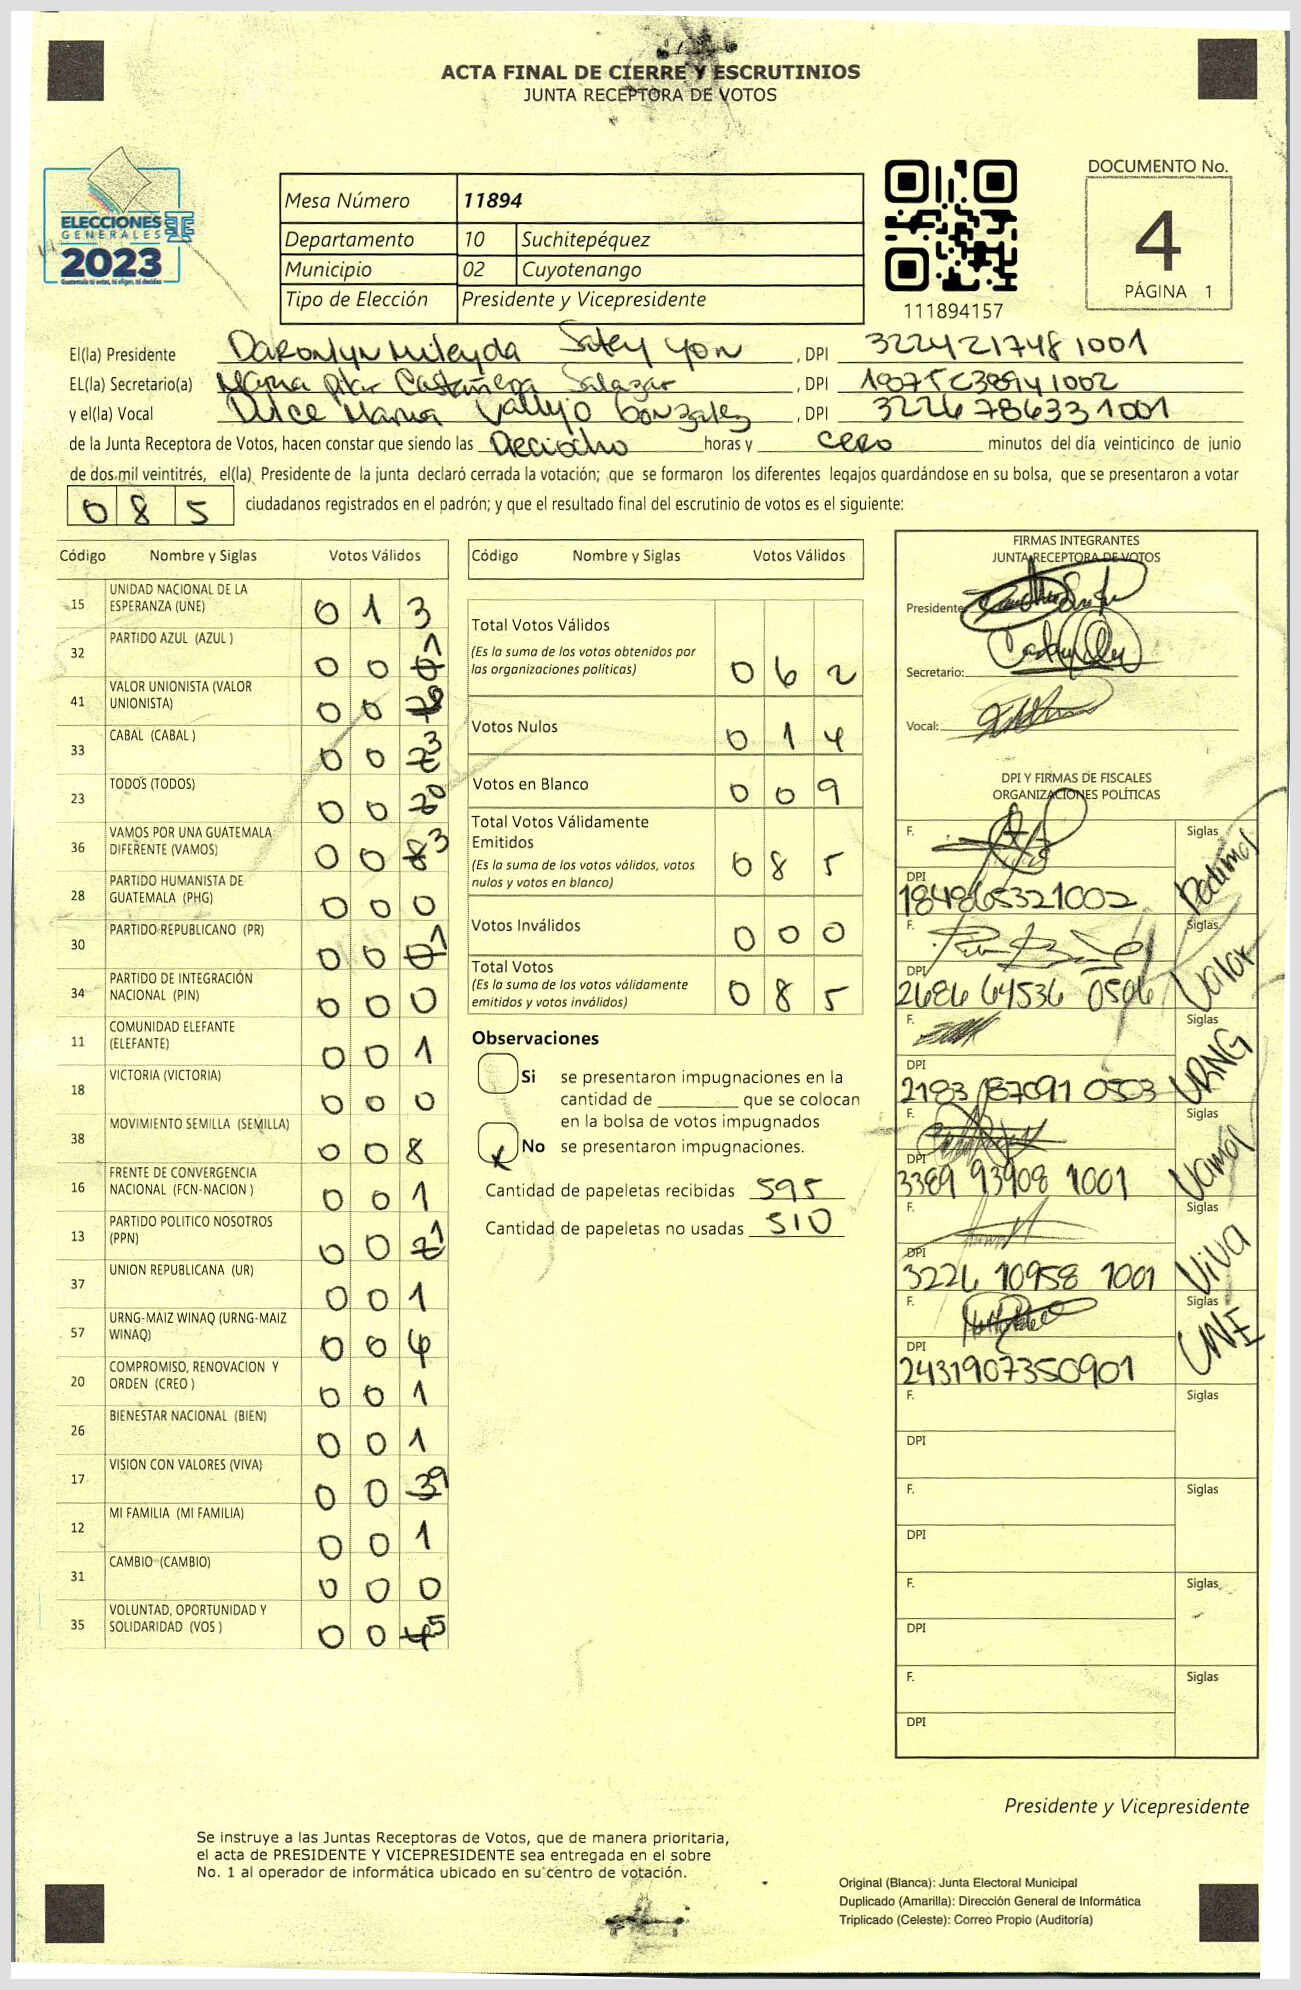 ACTA FINAL DE CIERRE Y ESCRUTINIOS
JUNTA RECEPTORA DE VOTOS
ELECCIONES
GENERALES
2023
Guatemala tú votas, tú eliges, tú decides
Mesa Número 11894
Departamento 10 Suchitepéquez
Municipio 02 Cuyotenango
Tipo de Elección Presidente y Vicepresidente
111894157
DOCUMENTO No.
4
PÁGINA 1
El(la) Presidente Daronlyn Mileyda Satey Yon , DPI 3224217481001
EL(la) Secretario(a) Maria Pilar Castañeda Salazar , DPI
y el(la) Vocal Dulce Maria Vallejo Gonzalez , DPI 3226786331001
de la Junta Receptora de Votos, hacen constar que siendo las Deciocho horas y cero minutos del día veinticinco de junio
de dos mil veintitrés, el(la) Presidente de la junta declaró cerrada la votación; que se formaron los diferentes legajos guardándose en su bolsa, que se presentaron a votar
085 ciudadanos registrados en el padrón; y que el resultado final del escrutinio de votos es el siguiente:
Código Nombre y Siglas Votos Válidos
15 UNIDAD NACIONAL DE LA ESPERANZA (UNE) 0 1 3
32 PARTIDO AZUL (AZUL ) 0 0 1
41 VALOR UNIONISTA (VALOR UNIONISTA) 0 0
33 CABAL (CABAL ) 0 0 3
23 TODOS (TODOS) 0 0 0
36 VAMOS POR UNA GUATEMALA DIFERENTE (VAMOS) 0 0 3
28 PARTIDO HUMANISTA DE GUATEMALA (PHG) 0 0 0
30 PARTIDO REPUBLICANO (PR) 0 0 1
34 PARTIDO DE INTEGRACIÓN NACIONAL (PIN) 0 0 0
11 COMUNIDAD ELEFANTE (ELEFANTE) 0 0 1
18 VICTORIA (VICTORIA) 0 0 0
38 MOVIMIENTO SEMILLA (SEMILLA) 0 0 8
16 FRENTE DE CONVERGENCIA NACIONAL (FCN-NACION ) 0 0 1
13 PARTIDO POLITICO NOSOTROS (PPN) 0 0 1
37 UNION REPUBLICANA (UR) 0 0 1
57 URNG-MAIZ WINAQ (URNG-MAIZ WINAQ) 0 0 4
20 COMPROMISO, RENOVACION Y ORDEN (CREO ) 0 0 1
26 BIENESTAR NACIONAL (BIEN) 0 0 1
17 VISION CON VALORES (VIVA) 0 0 9
12 MI FAMILIA (MI FAMILIA) 0 0 1
31 CAMBIO (CAMBIO) 0 0 0
35 VOLUNTAD, OPORTUNIDAD Y SOLIDARIDAD (VOS ) 0 0 5
Código Nombre y Siglas Votos Válidos
Total Votos Válidos 0 6 2
(Es la suma de los votos obtenidos por
las organizaciones políticas)
Votos Nulos 0 1 4
Votos en Blanco 0 0 9
Total Votos Válidamente
Emitidos 0 8 5
(Es la suma de los votos válidos, votos
nulos y votos en blanco)
Votos Inválidos 0 0 0
Total Votos 0 8 5
(Es la suma de los votos válidamente
emitidos y votos inválidos)
Observaciones
Si se presentaron impugnaciones en la
cantidad de ________ que se colocan
en la bolsa de votos impugnados
x No se presentaron impugnaciones.
Cantidad de papeletas recibidas 595
Cantidad de papeletas no usadas 510
FIRMAS INTEGRANTES
JUNTA RECEPTORA DE VOTOS
Presidente:
Secretario:
Vocal:
DPI Y FIRMAS DE FISCALES
ORGANIZACIONES POLÍTICAS
F. Siglas
DPI 1849865321002
F. Siglas Valor
DPI 2686 64536 0506
F. Siglas URNG
DPI 2183 87091 0503
F. Siglas Vamos
DPI 3389 93908 1001
F. Siglas Viva
DPI 3226 10958 1001
F. Siglas UNE
DPI 2431907350901
F. Siglas
DPI
F. Siglas
DPI
F. Siglas
DPI
F. Siglas
DPI
Presidente y Vicepresidente
Se instruye a las Juntas Receptoras de Votos, que de manera prioritaria,
el acta de PRESIDENTE Y VICEPRESIDENTE sea entregada en el sobre
No. 1 al operador de informática ubicado en su centro de votación.
Original (Blanca): Junta Electoral Municipal
Duplicado (Amarilla): Dirección General de Informática
Triplicado (Celeste): Correo Propio (Auditoría)